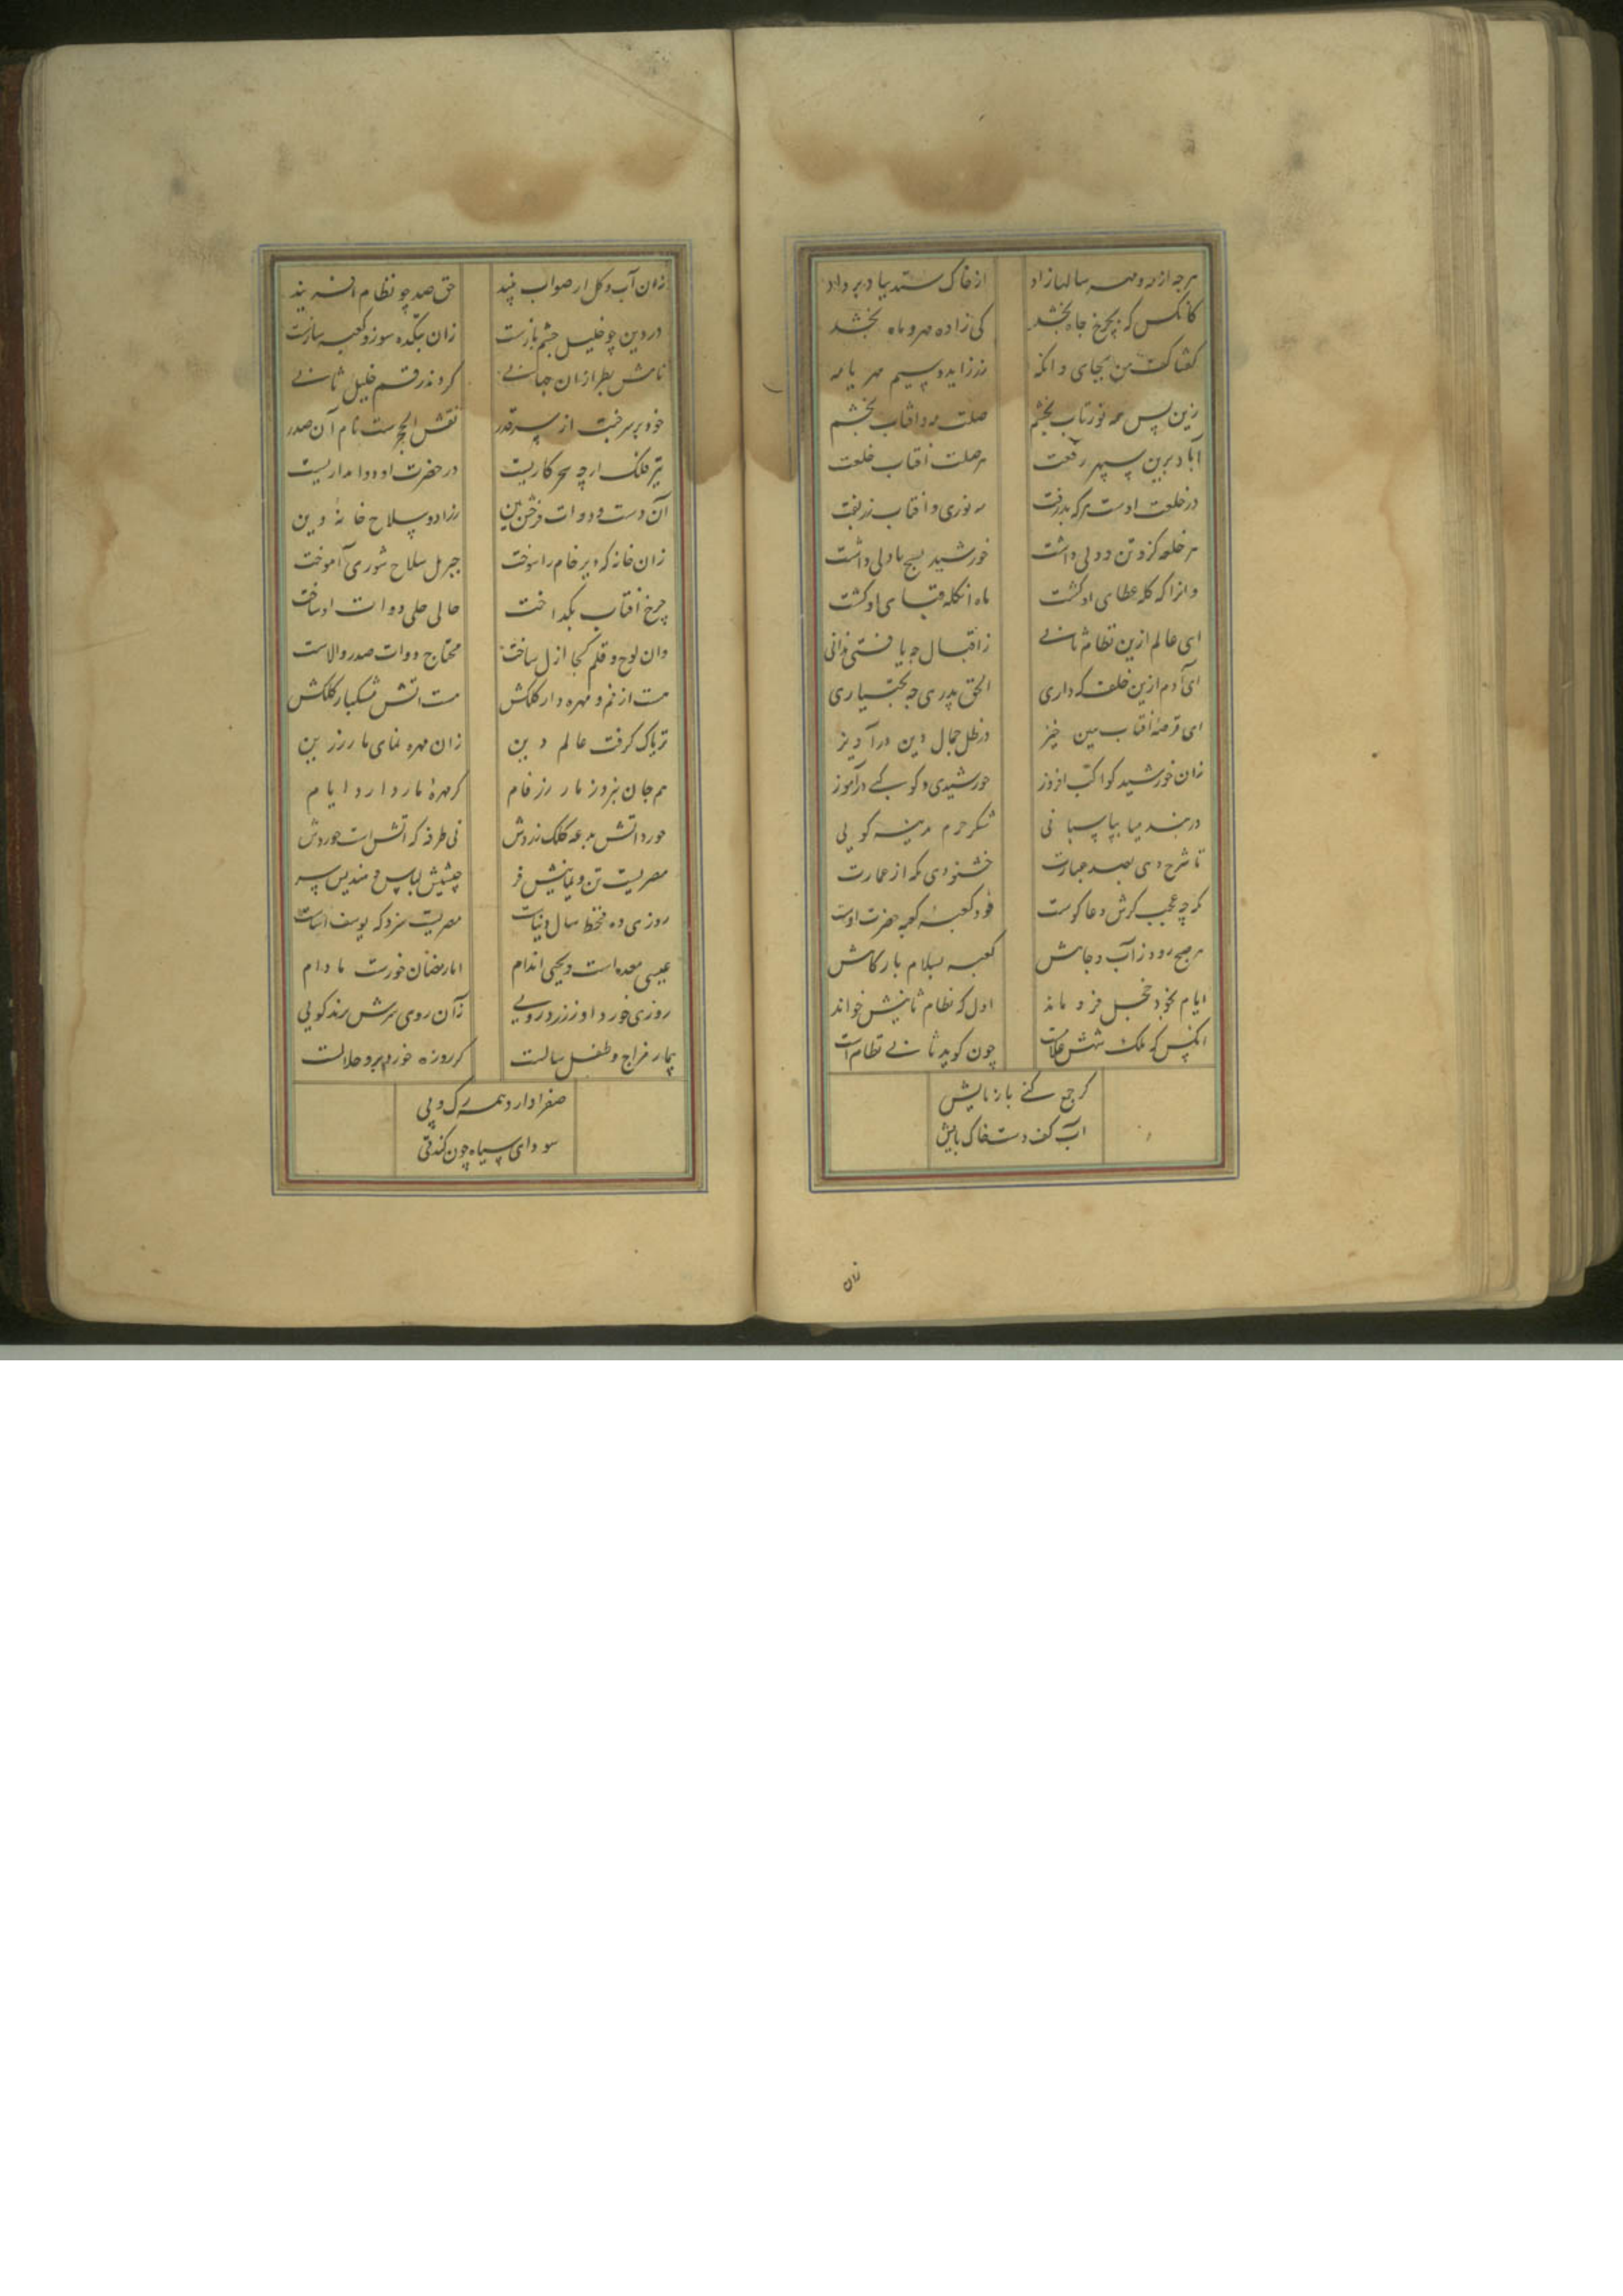 هرچه از مه و مهر سالها زاد از خاک ستد بباد برداد
کانکس که بچرخ جاه بخشد کی زاده مهر و ماه بخشد
گفتا کف من بجای دانکه زر زاید و سیم مهر یا مه
زین پس مه نورتاب بخشم صلت مه و افتاب بخشم
آباد برین سپهر رفعت هر صلت افتاب خلعت
در خلعت اوست هرکه بدرفت مه نوری و افتاب زربفت
هر خلعه کزو تن دولی داشت خورشید بسیج مادلی داشت
وانرا که کله عطای او گشت ماه انکله قبای او گشت
ای عالم ازین نظام ثانی ز اقبال چه یافتی ندانی
ای آدم ازین خلف که داری الحق پدری چه بختیاری
ای قرصه افتاب هین خیز در ظل جمال دین درآویز
زان خورشید کواکب افروز خورشیدی و کوکبی درآموز
در بند میا بپاسبانی شکر حرم مدینه گویی
تا شرح دهی بصد عبارت خشنودی مکه از عمارت
گرچه عجب گرش دعا گوست خود کعبه کعبه حضرت اوست
هر صبح رود ز آب و جاهش کعبه بسلام بارگاهش
ایام بخود خجل فرو ماند اول که نظام ثانیش خواند
انکس که ملک شهش غلامست چون گوید ثانی نظامست
گر جمع کنی بازمایش
آب کف دست و خاک پایش
زان
زان آب و گل ار صواب بیند حق صد چو نظام افریند
در دین چو خلیل چشم بازست زان بتکده سوز و کعبه سازست
نامش بطراز ان جهانی کردند رقم خلیل ثانی
خود بر سر تخت از سر قدر نقش الحجرست نام آن صدر
تیر فلک ارچه سحر کاریست در حضرت او دوات داریست
آن دست و دوات فرخش بین زراد و سلاح خانه دین
زان خانه که دیر خام را سوخت جبریل سلاح شوری آموخت
چرخ افتاب بگداخت حالی حلی دوات او ساخت
وان لوح و قلم کجا ازل ساخت محتاج دوات صدر والاست
هست از خم و مهره دار کلکش هست اتش مشکبار کلکش
تریاک گرفت عالم دین زان مهره نمای مار زرین
هم جان برد زمار زر فام گر مهره مار دارد ایام
خورد اتش بدعه کلک زردش نی طرفه که اتش است خوردش
مصریست تن و یمانیش فر چینیش لباس و هندیش سر
روزی ده قحط سال دنیاست مصریست سزد که یوسف اساست
عیسی معده است و یحیی اندام اما رمضان خورست مادام
روزی خورد او ز زرد رویی زآن روی سرش برند گویی
بیمار مزاج و طفل سالست گر روزه خورد برو حلالست
صفرا دارد همه رگ و پی
سودای سیاه چون کند قی